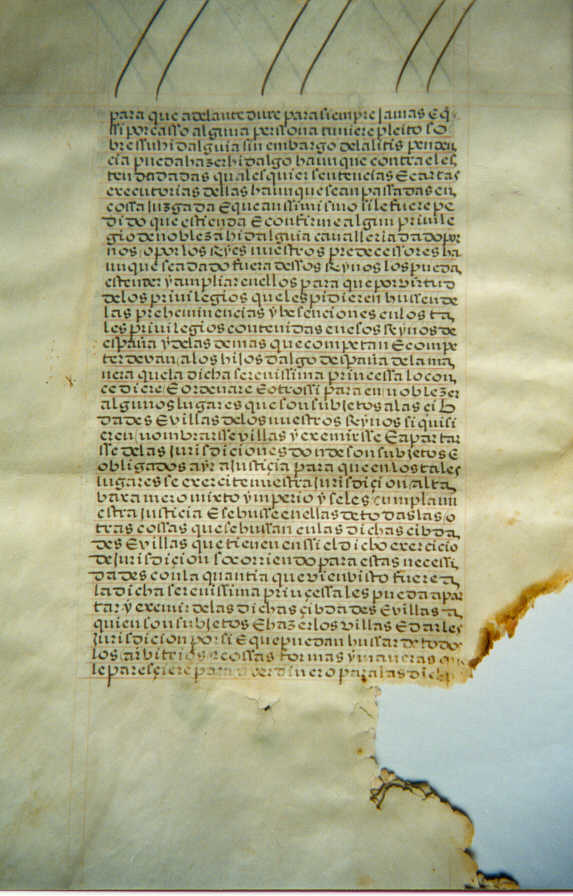 para que adelante dure para siempre jamas E q̃
ssi por casso alguna perssona tuviere pleito so
bre ssu hidalguia sin embargo de la litis penden
cia pueda hazer hidalgo haunque contra el es
ten dadas quales quier sentencias E cartas
executorias dellas haunque sean passadas en
cossa juzgada E que anssimismo si le fuere pe
dido que estienda E confirme algun privile
gio de nobleza hidalguia cavalleria dado por
nos o por los Reyes nuestros predecessores ha
unque sea dado fuera dessos Reynos los pueda
estender y ampliar en ellos para que por virtud
de los privilegios que les pidieren bussen de
las preheminencias y hesenciones en los ta
les privilegios contenidas en esos Reynos de
españa y de las demas que competan E compe
ter devan a los hijos dalgo despaña de la ma
nera que la dicha serenissima princessa lo con
cediere E ordenare E otrossi para en noblezer
algunos lugares que son subjetos a las cib
dades E villas de los nuestros Reynos si quisi
eren nombrarsse villas y exemirsse E apartar
sse de las jurisdiciones donde son subjetos E
obligados a yr a justicia para que en los tales
lugares se exercite nuestra jurisdicion alta
baxa mero mixto ymperio y se les cumpla nu
estra justicia E se husse en ellas de todas las o
tras cossas que se hussan en las dichas cibda
des E villas que tienen en ssi el dicho exercicio
de jurisdicion socorriendo para estas necessi
dades con la quantia que vien visto fuere a
la dicha serenissima princessa les pueda apar
tar y exemir de las dichas cibdades E villas a
quien son subjetos E hazerlos villas E darles
jurisdicion por si E que puedan hussar de todo
los arbitrios cossas formas y maneras que
le paresciere para aver dinero para las dich